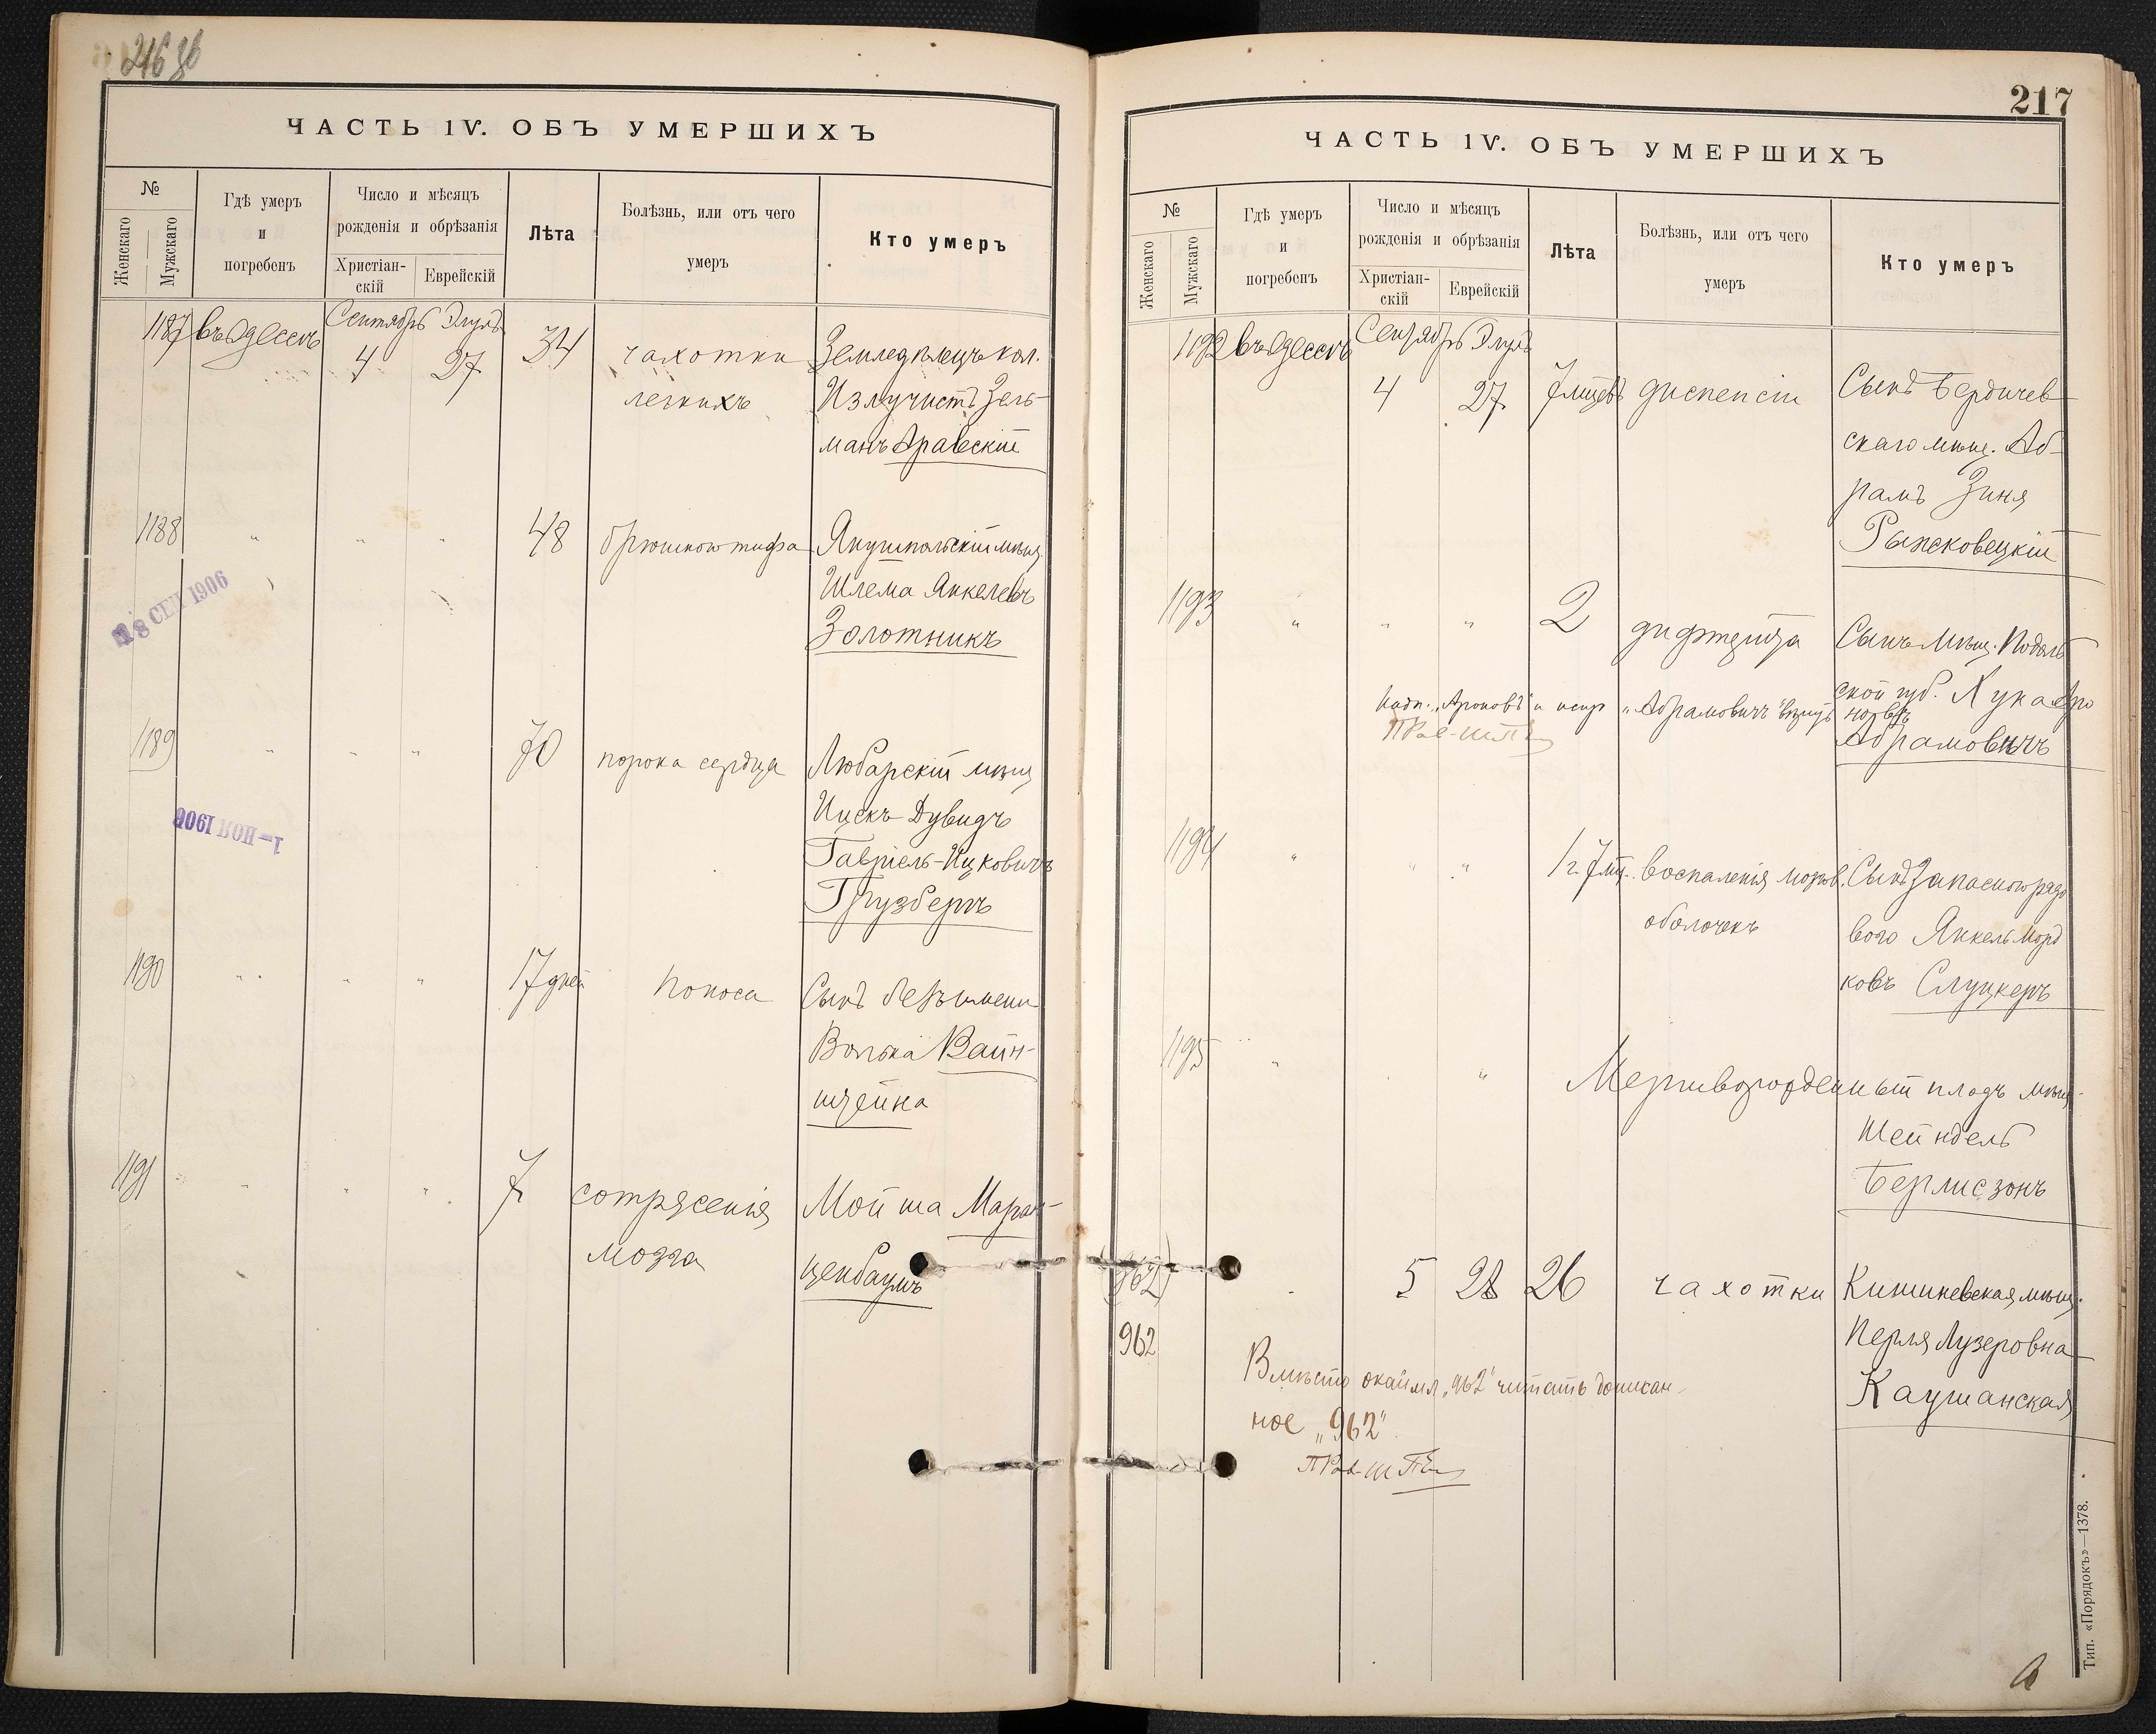 216 об
ЧАСТЬ IV. ОБЪ УМЕРШИХЪ
№
Женскаго
Мужскаго
Гдѣ умеръ
и
погребенъ
Число и мѣсяцъ
рожденія и обрѣзанія
Христіан-
скій
Еврейскій
Лѣта
Болѣзнь, или отъ чего
умеръ
Кто умеръ
1187 въ Одессѣ Сентябрь Элулъ
4 27 34 чахотки Земледѣлецъ кол.
легкихъ Излучистъ Зель-
манъ Аравскій
1188 " " " 48 брюшного тифа Янушпольскій мѣщ.
Шлема Янкелевъ
Золотникъ
18 СЕН 1906
1189 " " " 70 порока сердца Любарскій мѣщ.
Ицекъ-Дувидъ
Гавріель-Ицковичъ
Грузбергъ
1-НОЯ 1906
1190 " " " 17 дней поноса Сынъ безъ имени
Волька Вайн-
штейна
1191 " " " 7 сотрясенія Мойша Маран-
мозга ценбаумъ
217
ЧАСТЬ IV. ОБЪ УМЕРШИХЪ
№
Женскаго
Мужскаго
Гдѣ умеръ
и
погребенъ
Число и мѣсяцъ
рожденія и обрѣзанія
Христіан-
скій
Еврейскій
Лѣта
Болѣзнь, или отъ чего
умеръ
Кто умеръ
1192 въ Одессѣ Сентябрь Элулъ
4 27 7 мѣсцевъ диспепсіи Сынъ Бердичев-
скаго мѣщ. Аб-
рамъ Зиня
Рыжсковецкій
1193 " " " 2 дифтерита Сынъ мѣщ. Подоль
ской губ. Хука Аро
новъ
Надп. „Ароновъ" и испр „Абрамовичъ" вѣрить
Абрамовичъ
1194 " " " 1 г. 7 мц. воспаленія мозгов. Сынъ Запасного рядо
оболочекъ вого Янкель Морд
ковъ Слуцкеръ
1195 " " Мертворожденный плодъ мѣщ.
Шейндель
Берлисзонъ
(962) 5 28 26 чахотки Кишиневская мѣщ.
962 Перля Лузеровна
Каушанская
Вмѣсто окаймл. „962" читать дописан-
ное „962"
Тип. «Порядокъ»—1378.